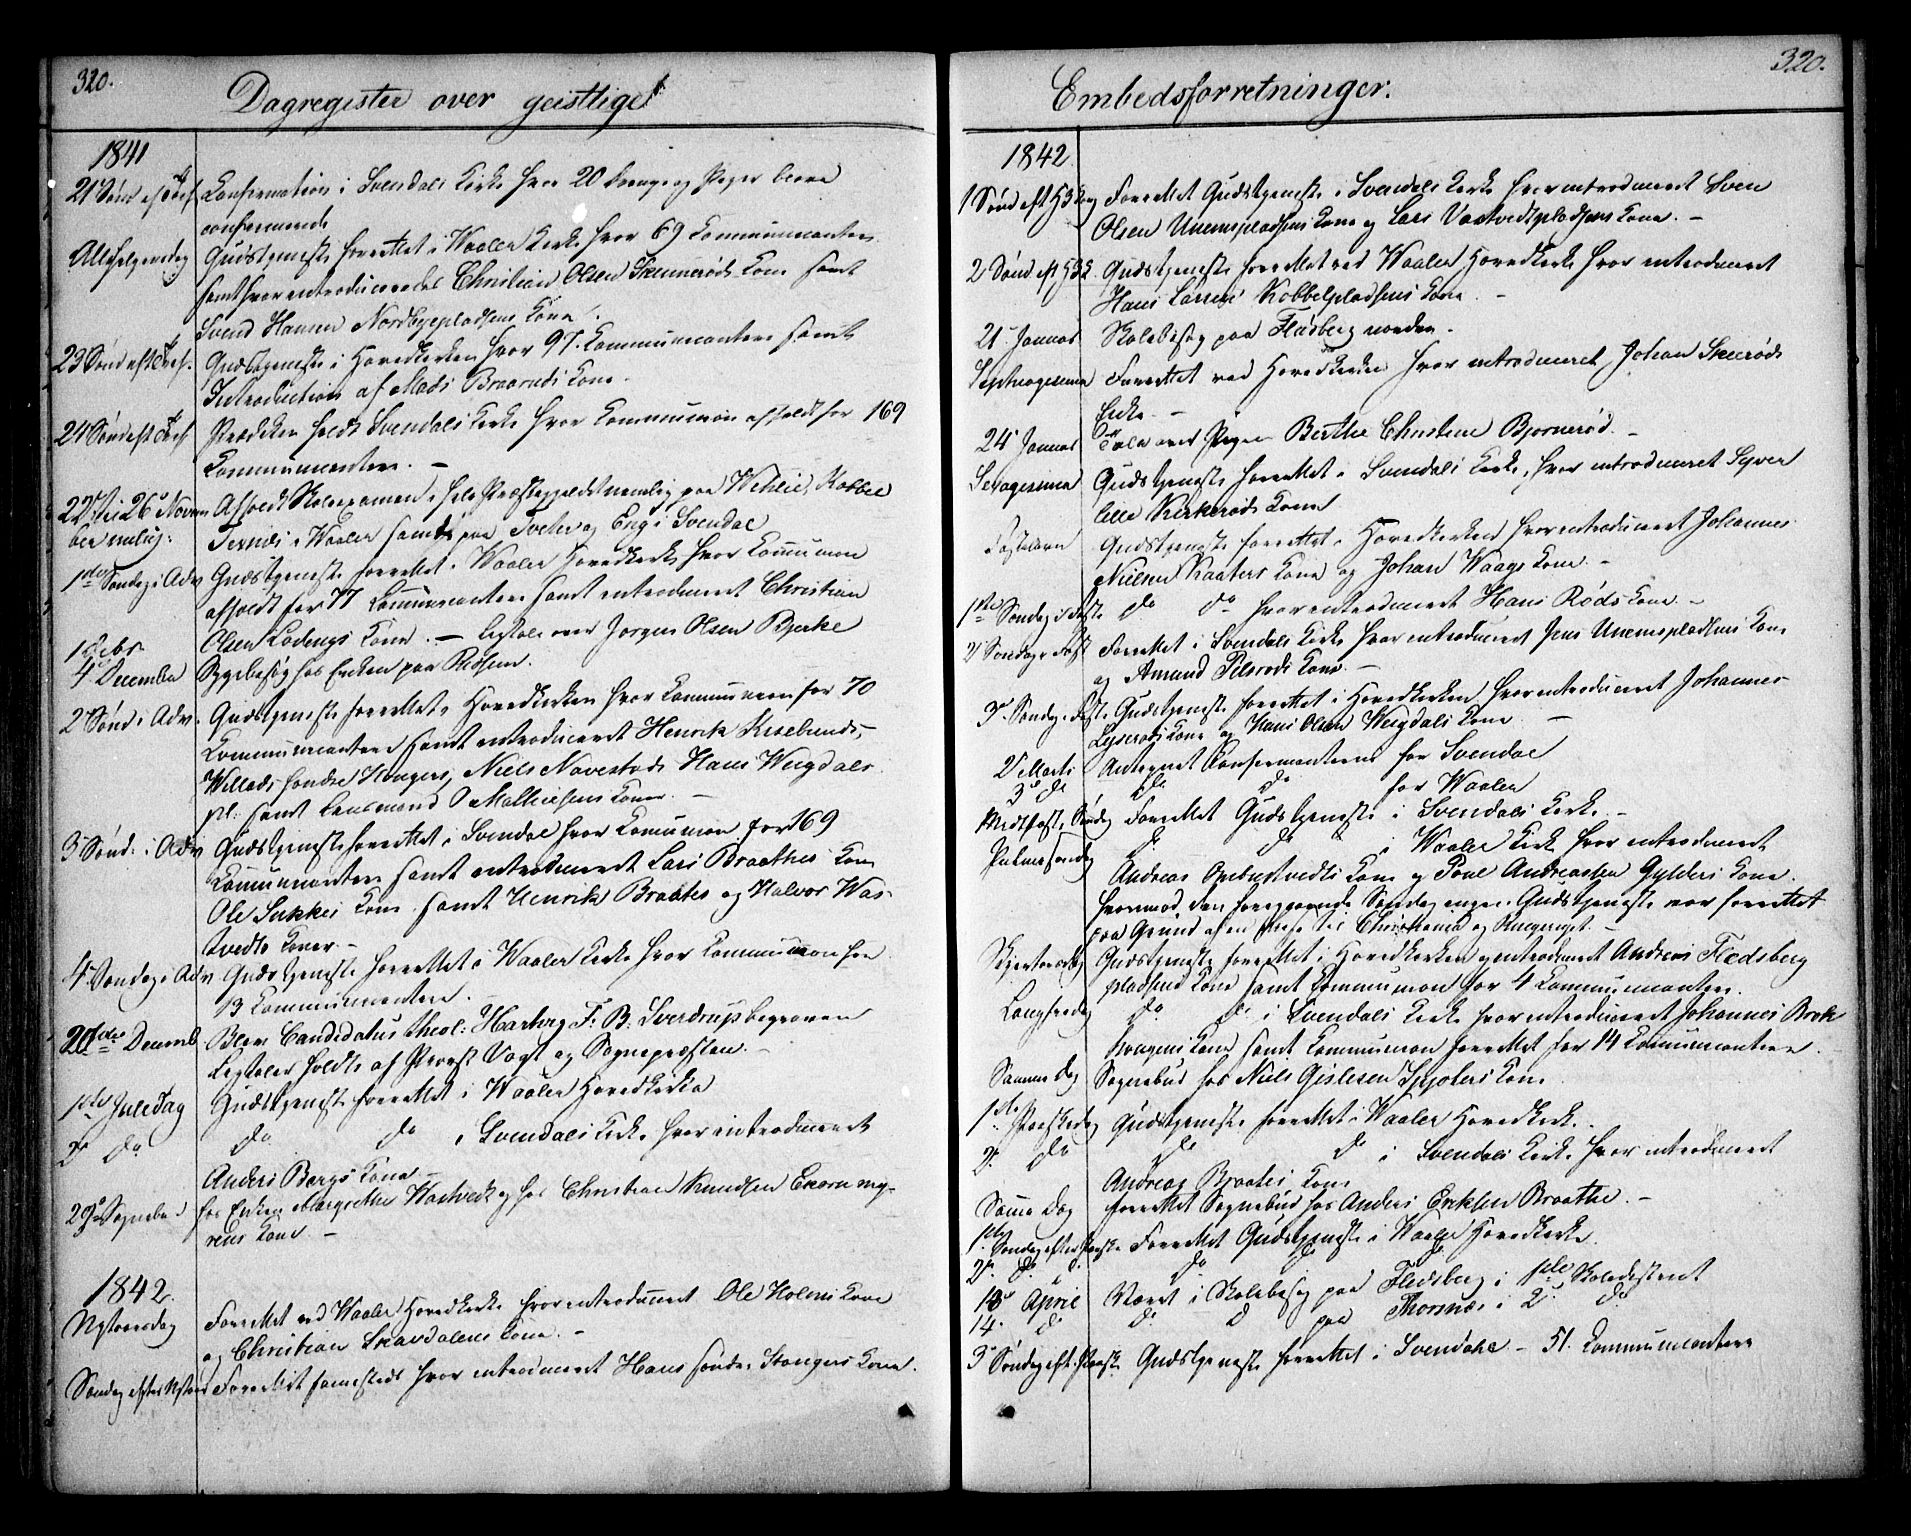 320.
Dagregister over geistlige
1841
21 Sønd eft Tref. Confirmation i Svendals Kirke hvor 20 Drenge og Piger bleve
confirmerede
Allehelgensdag Gudstjeneste forrettet i Waaler Kirke hvor 69 Communicantere
samt hvor introduceredes Christian Olsen Skinnerøds Kone samt
Svend Hansen Nordbyepladsens Kone.
23 Sønd eft Tref. Gudstjeneste i Hovedkirken hvor 97 Communicantere samt
Introduction af Mads Braaruds Kone.
24 Sønd eft Tref Prædiken holdt Svendals Kirke hvor Communion afholdt for 169
Communicantere. —
22 til 26 Novem Afholdt Skoleexamen i hele Præstegjeldet nemlig paa Wihlie, Kobbel
ber nemlig: Texnæs i Waaler samt paa Tveter og Eng i Svendal
1ste Søndag i Adv Gudstjeneste forrettet i Waaler Hovedkirke hvor Communion
afholdt for 77 Communicantere samt introduceret Christian
Olsen Lodengs Kone. —
1 Decbr. Ligtale over Jørgen Olsen Bjerke
4 December Sygebesøg hos Enken paa Rødsen.
2 Sønd i Adv. Gudstjeneste forrettet i Hovedkirken hvor Communion for 70
Communicantere samt introduceret Henrik Kiselunds,
Willads søndre Stangers, Niels Navestads Hans Weigdals
pl: samt Lensmand O Mathiesens Koner. —
3 Sønd: i Adv Gudstjeneste forrettet i Svendal hvor Communion for 169
Communicantere samt introduceret Lars Braathes Kone
Ole Sukkes Kone samt Henrik Braates og Halvor Was-
tvedts Koner. —
4 Søndag i Adv Gudstjeneste forrettet i Waaler Kirke hvor Communion for
13 Communicantere.
20de Decemb Blev Candidatus theol: Hartvig F. B. Sverdrup begraven
Ligtaler holdte af Provst Vogt og Sognepræsten. —
1ste Juledag Gudstjeneste forrettet i Waaler Hovedkirke
2 do do do i Svendals Kirke hvor introduceret
Anders Bergs Kone —
29 Sognebud hos Enken Margrethe Wastvedt og hos Christian Knudsen Ekornmy-
rens Kone. —
1842.
Nytaarsdag Forrettet ved Waaler Hovedkirke hvor introduceret Ole Holms Kone
og Christian Skavdalens Kone. —
Søndag efter Nytaar Forrettet samesteds hvor introduceret Hans søndre Stangers Kone.
320.
Embedsforretninger.
1842
1 Sønd eft H3Kong Forrettet Gudstjeneste i Svendals Kirke hvor introduceret Sven
Olsen Unemspladsens Kone og Lars Vastvedtpladsens Kone. —
2 Sønd eft H3K Gudstjeneste forrettet ved Waaler Hovedkirke hvor introduceret
Hans Larsens Kobbelpladsens Kone. —
21 Januar Skolebesøg paa Flødberg norden.
Septuagesima Forrettet ved Hovedkirken hvor introduceret Johan Skinrøds
Enke. —
24 Januar Tale over Pigen Berthe Christine Bjørnerød. —
Sexagesima Gudstjeneste forrettet i Svendals Kirke, hvor introduceret Syver
lille Kirkerøds Kone
Fastelavn Gudstjeneste forrettet i Hovedkirken hvor introduceret Johannes
Nielsen Kraaters Kone og Johan Waags Kone. —
1ste Søndag i Faste do do hvor introduceret Hans Røds Kone. —
2 Søndag i Fast Forrettet i Svendals Kirke hvor introduceret Jens Unemspladsens Kone
og Amund Pilsrods Kone. —
3 Søndag i Faste Gudstjeneste forrettet i Hovedkirken hvor introduceret Johannes
Lyserøds Kone og Hans Olsen Weigdals Kone —
2 Marts Antegnet Confirmanterne for Svendal
3 do do do for Waaler
Midtfaste Søndag Forrettet Gudstjeneste i Svendals Kirke. —
Palmesøndag do do i Waaler Kirke hvor introduceret
Andreas Opebustvedts Kone og Povel Andreassen Gylders Kone.
hvormod den foregaaende Søndag ingen Gudstjeneste var forrettet
paa Grund af en Reise til Christiania og Ringeriget. —
Skjertorsdag Gudstjeneste forrettet i Hovedkirken og introduceret Andreas Flødsberg
pladsens Kone samt Communion for 4 Communicanter.
Langfredag do do i Svendals Kirke hvor introduceret Johannes Brek
Kragens Kone samt Communion forrettet for 14 Communicantere.
Samme Dag Sognebud hos Niels Gislesen Spjøters Kone
1ste Paaskedag Gudstjeneste forrettet i Waaler Hovedkirke.
2 do do do i Svendals Kirke hvor introduceret
Andreas Braates Kone
Samme Dag forrettet Sognebud hos Anders Eriksen Braathe. —
1ste Søndag efter Paaske Forrettet Gudstjeneste i Waaler Hovedkirke.
2. do. d. do do do
13 April Været i Skolebesøg paa Flødsberg i 1ste Skoledistrict
14. do do d paa Thornæs i 2 do
3 Søndag eft. Paaske Gudstjeneste forrettet i Svendahl — 51. Communicantere